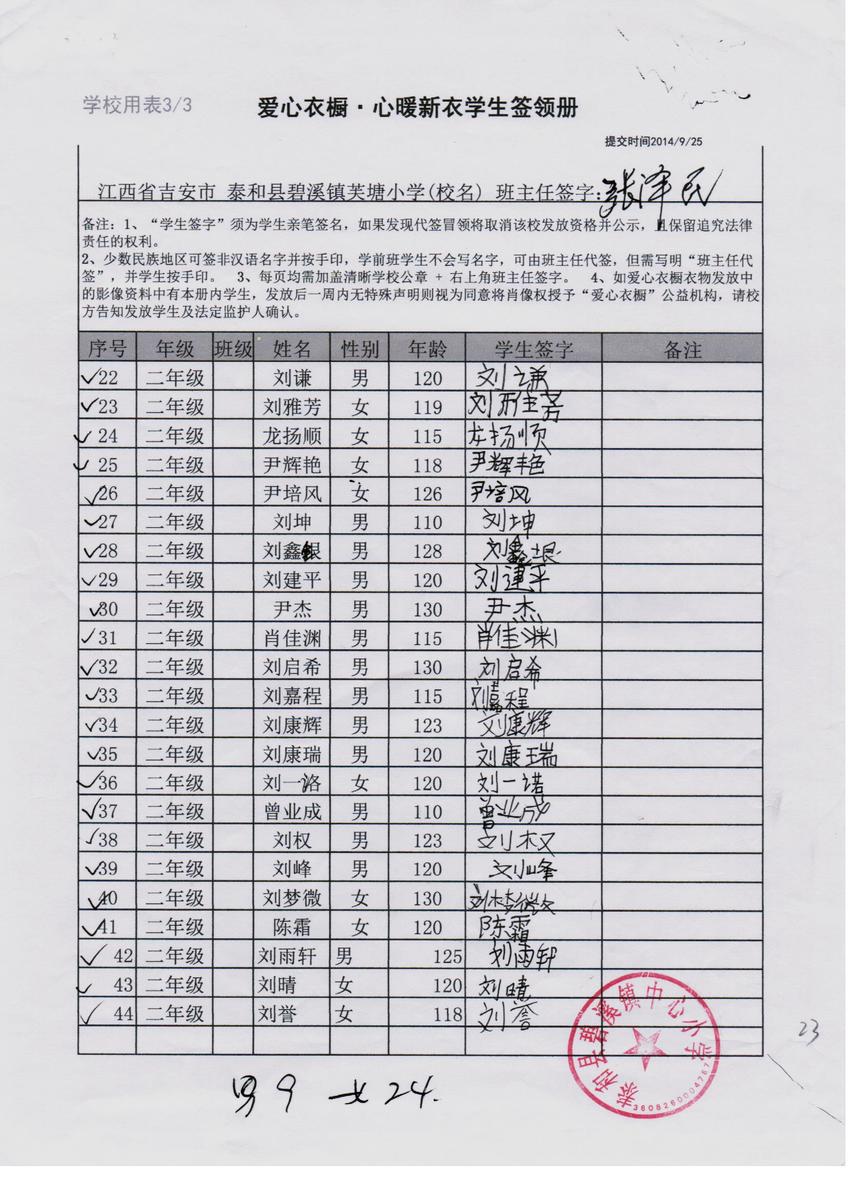 学校用表3/3
爱心衣橱·心暖新衣学生签领册
提交时间2014/9/25
江西省吉安市 泰和县碧溪镇芙塘小学(校名) 班主任签字:张泽民
备注：1、“学生签字”须为学生亲笔签名，如果发现代签冒领将取消该校发放资格并公示，且保留追究法律
责任的权利。
2、少数民族地区可签非汉语名字并按手印，学前班学生不会写名字，可由班主任代签，但需写明“班主任代
签”，并学生按手印。 3、每页均需加盖清晰学校公章 + 右上角班主任签字。 4、如爱心衣橱衣物发放中
的影像资料中有本册内学生，发放后一周内无特殊声明则视为同意将肖像权授予“爱心衣橱”公益机构，请校
方告知发放学生及法定监护人确认。
序号 年级 班级 姓名 性别 年龄 学生签字 备注
22 二年级 刘谦 男 120 刘谦
23 二年级 刘雅芳 女 119 刘雅芳
24 二年级 龙扬顺 女 115 龙扬顺
25 二年级 尹辉艳 女 118 尹辉艳
26 二年级 尹培风 女 126 尹培风
27 二年级 刘坤 男 110 刘坤
28 二年级 刘鑫银 男 128 刘鑫垠
29 二年级 刘建平 男 120 刘建平
30 二年级 尹杰 男 130 尹杰
31 二年级 肖佳渊 男 115 肖佳渊
32 二年级 刘启希 男 130 刘启希
33 二年级 刘嘉程 男 115 刘嘉程
34 二年级 刘康辉 男 123 刘康辉
35 二年级 刘康瑞 男 120 刘康瑞
36 二年级 刘一洛 女 120 刘一诺
37 二年级 曾业成 男 110 曾业成
38 二年级 刘权 男 123 刘权
39 二年级 刘峰 男 120 刘峰
40 二年级 刘梦微 女 130 刘梦微
41 二年级 陈霜 女 120 陈霜
42 二年级 刘雨轩 男 125 刘雨轩
43 二年级 刘晴 女 120 刘晴
44 二年级 刘誉 女 118 刘誉
泰和县碧溪镇中心小学
23
男9 女24.